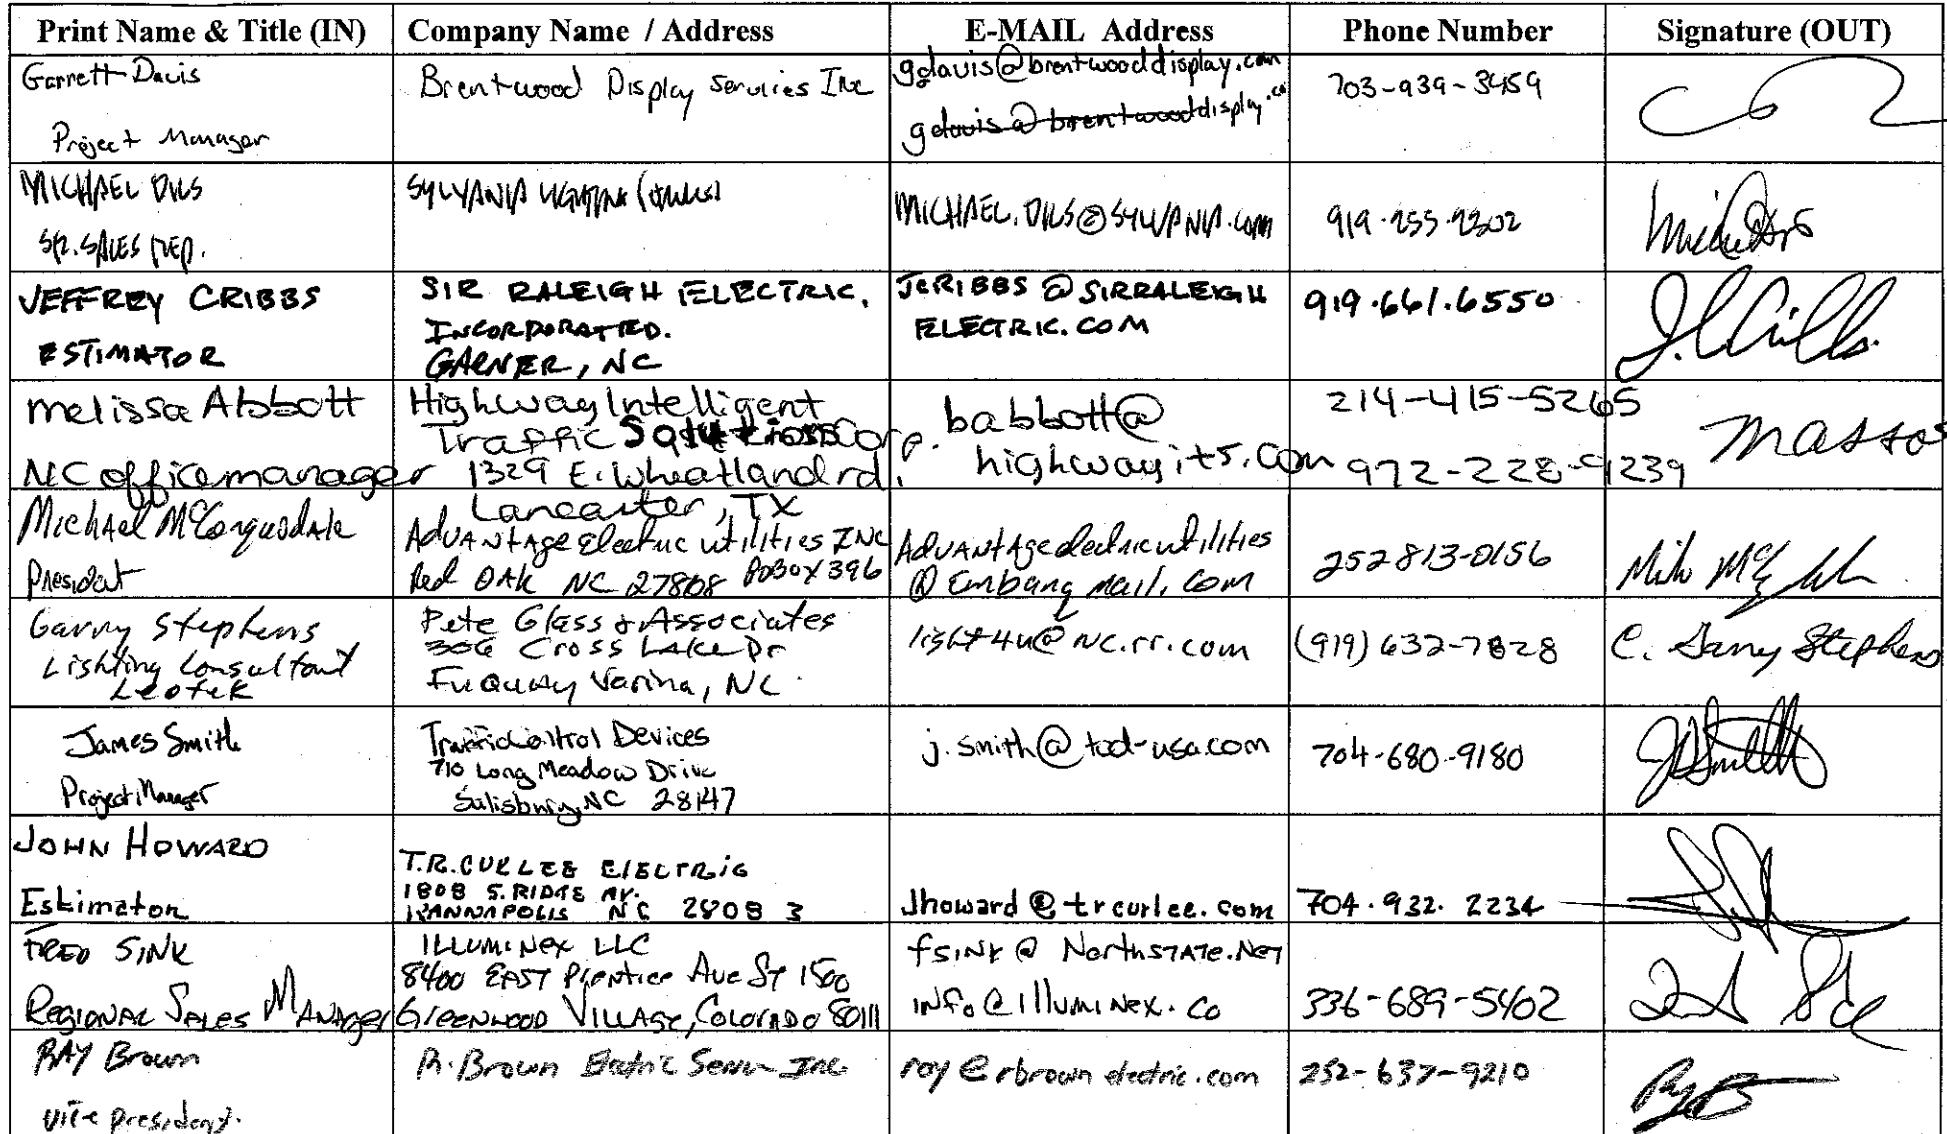 Print Name & Title (IN) Company Name / Address E-MAIL Address Phone Number Signature (OUT)
Garrett Davis
Project Manager
Brentwood Display Services Inc
gdavis@brentwooddisplay.com
gdavis@brentwooddisplay.co
703-939-3459
MICHAEL DILS
SR. SALES REP.
SYLVANIA LIGHTING
MICHAEL.DILS@SYLVANIA.COM
919-255-9302
JEFFREY CRIBBS
ESTIMATOR
SIR RALEIGH ELECTRIC,
INCORPORATED.
GARNER, NC
JCRIBBS @ SIRRALEIGH
ELECTRIC.COM
919.661.6550
Melissa Abbott
NC office manager
Highway Intelligent
Traffic Solutions Corp.
1329 E. Wheatland rd.
Lancaster, TX
babbott@
highwayits.com
214-415-5265
972-228-9239
Michael McCorquodale
President
Advantage Electric utilities INC
Red OAK NC 27868 POBOX 396
Advantageelectricutilities
@ Embarqmail.com
252 813-0156
Garry Stephens
Lighting Consultant
Leotek
Pete Glass & Associates
306 Cross Lake Dr
Fuquay Varina, NC
light4u@nc.rr.com
(919) 632-7828
C. Garry Stephens
James Smith
Project Manager
Traffic Control Devices
710 Long Meadow Drive
Salisbury, NC 28147
j.smith@tcd-usa.com
704-680-9180
JOHN HOWARD
Estimator
T.R. CURLEE ELECTRIC
1808 S. RIDGE AV.
KANNAPOLIS NC 28083
Jhoward@trcurlee.com
704.932.2234
FRED SINK
Regional Sales Manager
ILLUMINEX LLC
8400 EAST Prentice Ave ST 1500
GREENWOOD VILLAGE, COLORADO 80111
fsink @ NorthSTATE.NET
INFO@Illuminex.Co
336-689-5402
RAY Brown
Vice president.
R. Brown Electric Serv Inc.
roy@rbrownelectric.com
252-637-9210